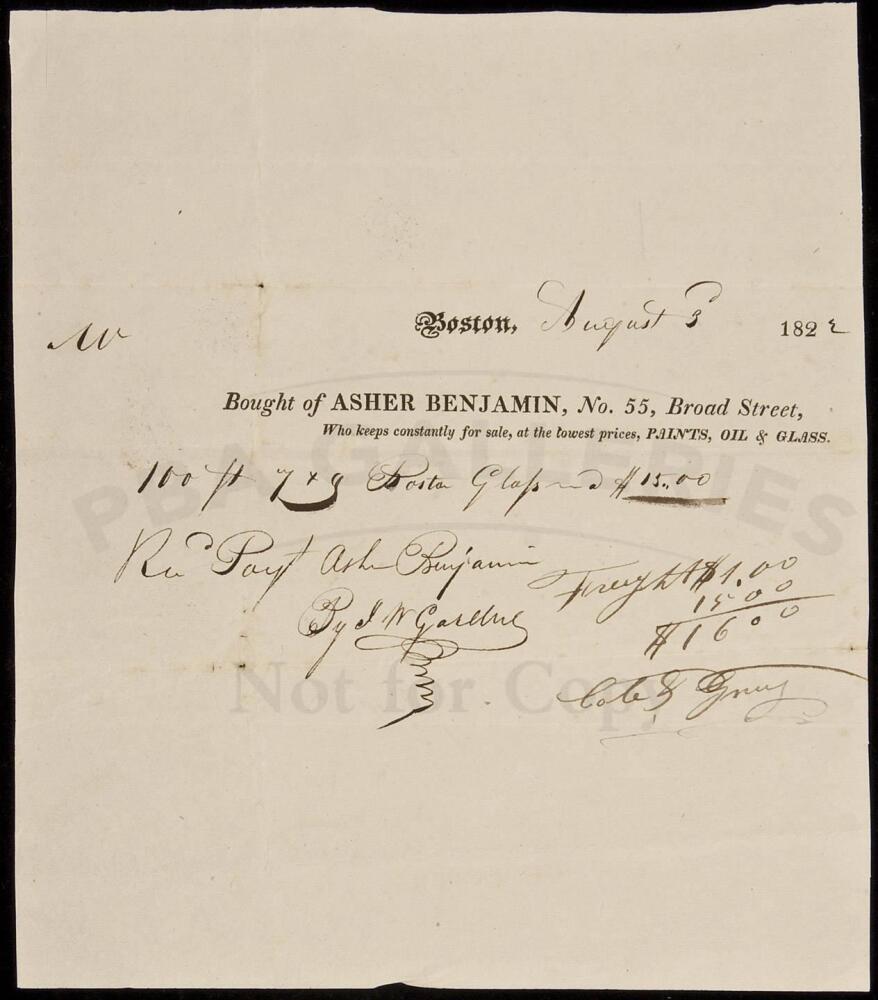 Boston, August 3 1822
Mr
Bought of ASHER BENJAMIN, No. 55, Broad Street,
Who keeps constantly for sale, at the lowest prices, PAINTS, OIL & GLASS.
100 ft 7 x 9 Boston Glass $15.00
Recd Payt Asher Benjamin
By J W Gardner
Freight $1.00
15.00
$16.00
PBA GALLERIES
Not for Copy